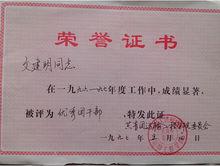 荣誉证书
文建明同志:
在一九九六—一九九七年度工作中,成绩显著,
被评为 优秀团干部 特发此证
共青团
委员会
一九九七年 月 日